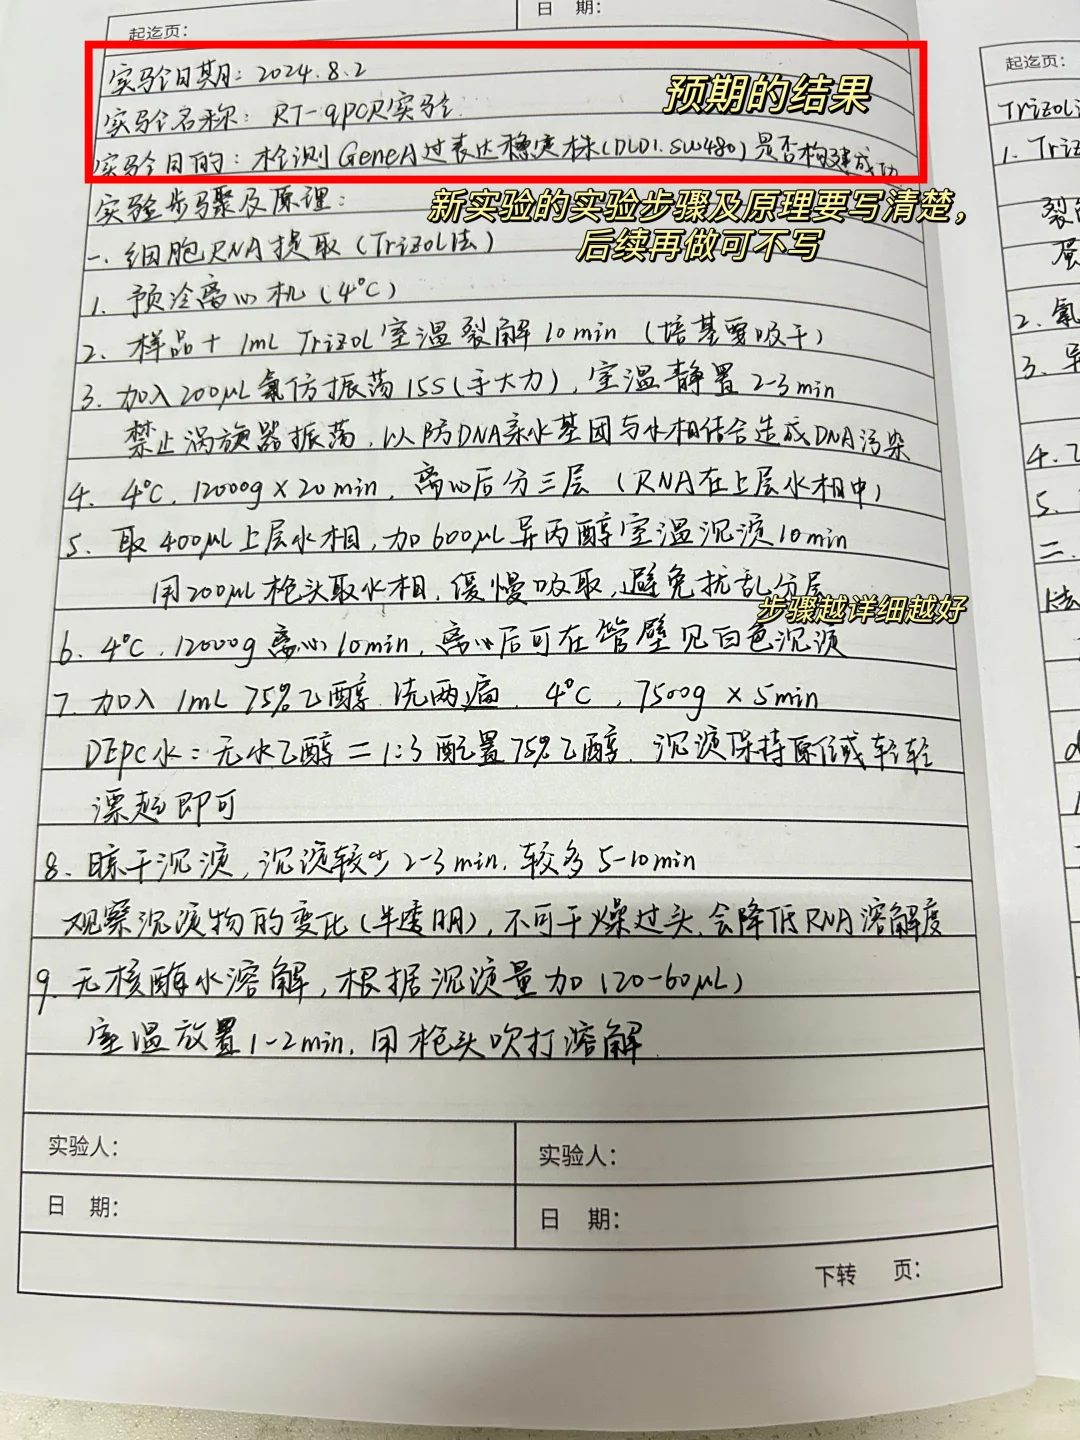 起迄页：
日 期：
实验日期：2024.8.2
预期的结果
实验名称：RT-qPCR实验
实验目的：检测GeneA过表达稳定株(DLD1.SW480)是否构建成功
实验步骤及原理：
新实验的实验步骤及原理要写清楚，
后续再做可不写
一、细胞RNA提取（Trizol法）
1. 预冷离心机（4℃）
2. 样品+ 1mL Trizol室温裂解10min（培基要吸干）
3. 加入200μL氯仿振荡15S(手大力)，室温静置2-3min
禁止涡旋器振荡，以防DNA亲水基团与水相结合造成DNA污染
4. 4℃，12000g×20min，离心后分三层（RNA在上层水相中）
5. 取400μL上层水相，加600μL异丙醇室温沉淀10min
用200μL枪头取水相，缓慢吸取，避免扰乱分层
步骤越详细越好
6. 4℃，12000g离心10min，离心后可在管壁见白色沉淀
7. 加入1mL 75%乙醇.洗两遍. 4℃，7500g×5min
DEPC水：无水乙醇=1:3配置75%乙醇. 沉淀保持原位或轻轻
漂起即可
8. 晾干沉淀，沉淀较少2-3min.较多5-10min
观察沉淀物的变化(半透明)，不可干燥过头.会降低RNA溶解度
9. 无核酶水溶解，根据沉淀量加(20-60μL)
室温放置1-2min.用枪头吹打溶解.
实验人：
实验人：
日 期：
日 期：
下转 页：
起迄页：
Trizol
1. Triz
裂
蛋
2. 氯
3. 异
4. 乙
5.
二.